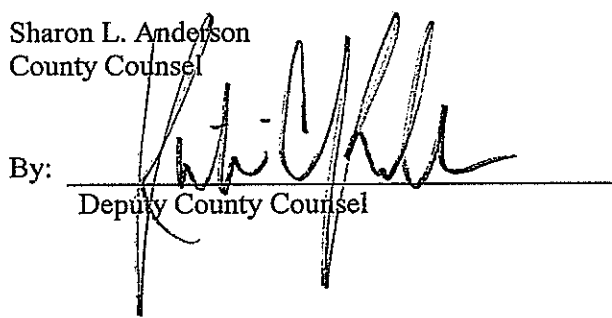 Sharon L. Anderson
County Counsel
By:
Deputy County Counsel